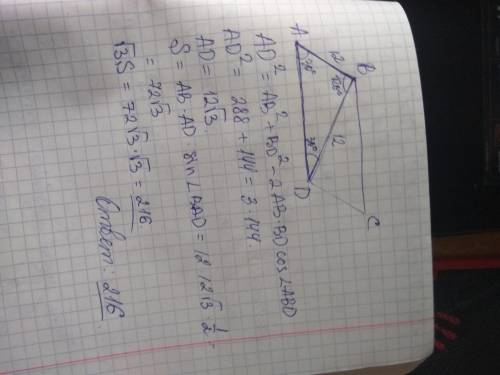 A 12 B
30° 120°
30° 12
D C
AD² = AB² + BD² - 2AB·BD cos∠ABD
AD² = 288 + 144 = 3·144.
AD = 12√3.
S = AB·AD·sin∠BAD = 12·12√3·1/2 =
= 72√3
√3S = 72√3·√3 = 216
Ответ: 216.